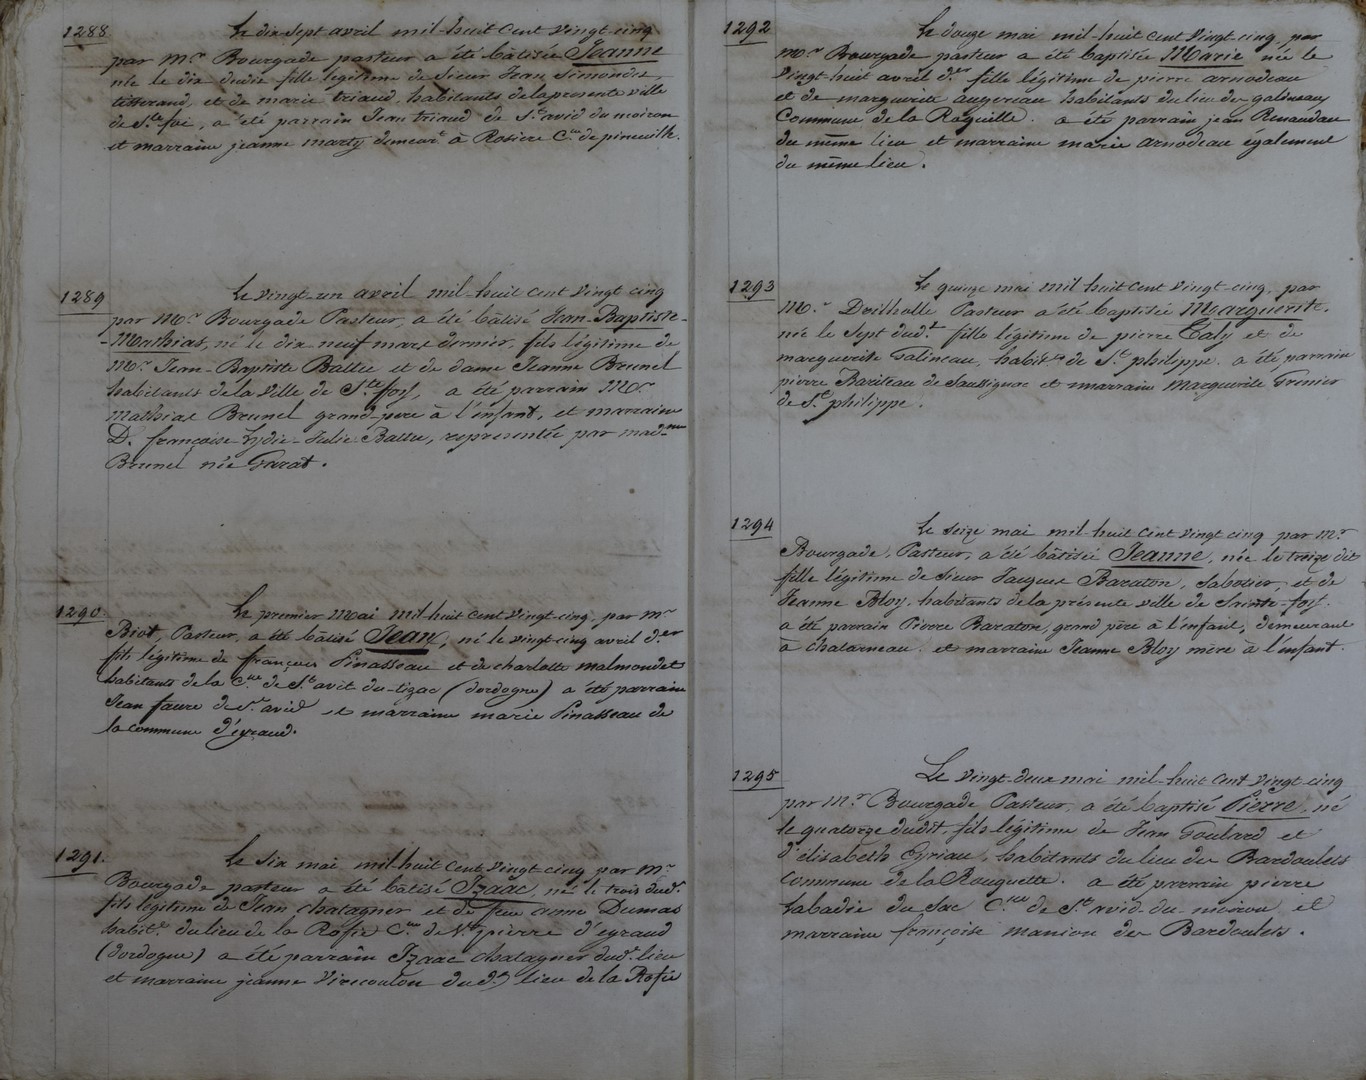 1288
Le dix sept avril mil-huit Cent vingt-cinq
par Mr Bourgade pasteur a été bâtisée Jeanne
née le dix dudit fille légitime de Sieur Jean Simondet
tisserand, et de marie triaud, habitants de la presente ville
de Ste foi, a été parrain Jean triaud de St avid du moiron
et marraine jeanne marty demeurt à Rosière Cne de pineuilh.
1289
Le vingt-un avril mil-huit Cent vingt cinq
par Mr Bourgade Pasteur, a été bâtisé Jean-Baptiste-
-Mathias, né le dix neuf mars dernier, fils légitime de
Mr Jean-Baptiste Battu et de dame Jeanne Brunel
habitants de la ville de Ste foy, a été parrain Mr
Mathias Brunel grand-père à l'enfant, et marraine
D. françoise-Lydie-Julie Battu, représentée par madme
Brunel née Garat.
1290
Le premier Mai mil-huit cent vingt-cinq, par mr
Biot, Pasteur, a été bâtisé Jean, né le vingt-cinq avril der
fils légitime de françois Pinasseau et de charlotte malmondet
habitants de la Cne de St avit-du-tizac (dordogne) a été parrain
Jean faure de St avid et marraine marie Pinasseau de
la commune d'éyraud.
1291.
Le six mai mil-huit cent vingt cinq par mr
Bourgade pasteur a été bâtisé Izaac né le trois dudt
fils légitime de Jean chatagner et de feue anne Dumas
habitts du lieu de la Rofie Cne de St pierre d'eyraud
(dordogne) a été parrain Izaac chatagner dudt lieu
et marraine jeanne Virecoulon du dt lieu de la Rofie
1292
Le douze mai mil-huit cent vingt cinq, par
Mr Bourgade pasteur a été baptisée Marie née le
vingt-huit avril der fille légitime de pierre arnodeau
et de marguerite augereau habitants du lieu de galineau
Commune de la Roquille. a été parrain jean Renaudau
du même lieu et marraine marie arnodeau également
du même lieu.
1293
Le quinze mai mil huit cent vingt-cinq, par
Mr Doilholle Pasteur a été baptisée Marguerite.
née le Sept dudt fille légitime de pierre Taly et de
marguerite Galineau, habitts de St philippe. a été parrain
pierre Bariteau de Saussignac et marraine Marguerite Grenier
de St philippe.
1294
Le seize mai mil-huit Cent vingt cinq par Mr
Bourgade, Pasteur, a été bâtisée Jeanne, née le treize dit
fille légitime de Sieur Jacques Baraton, Sabotier, et de
Jeanne Bloy, habitants de la présente ville de Sainte-foy.
a été parrain Pierre Baraton, grand père à l'enfant, demeurant
à chatarneau. et marraine Jeanne Bloy mère à l'enfant.
1295
Le vingt-deux mai mil-huit cent vingt-cinq
par Mr Bourgade Pasteur, a été baptisé Pierre, né
le quatorze dudit, fils légitime de Jean Goulard et
d'élisabeth Eyriau, habitants du lieu des Bardoulets
Commune de la Rouquette. a été parrain pierre
Labadie du Sac Cne de St avid-du-moiron et
marraine françoise manion des Bardoulets.